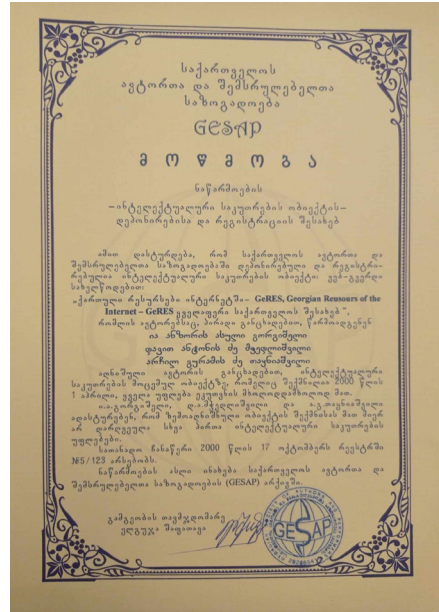 საქართველოს
ავტორთა და შემსრულებელთა
საზოგადოება
GESAP
მოწმობა
ნაწარმოების
–ინტელექტუალური საკუთრების ობიექტის–
დეპონირებისა და რეგისტრაციის შესახებ
ამით დასტურდება, რომ საქართველოს ავტორთა და
შემსრულებელთა საზოგადოებაში დეპონირებული და რეგისტრი-
რებულია ინტელექტუალური საკუთრების ობიექტი: ვებ-გვერდი
სახელწოდებით:
„ქართული რესურსები ინტერნეტში– GeRES, Georgian Reusours of the
Internet – GeRES ყველაფერი საქართველოს შესახებ",
რომლის ავტორებსაც, პირადი განცხადებით, წარმოადგენენ
ია ანზორის ასული გორგიშელი
დავით ანტონის ძე მჭედლიშვილი
არჩილ გურამის ძე თავნიაშვილი
აღნიშნული ავტორის განცხადებით, ინტელექტუალური
საკუთრების მოცემულ ობიექტზე, რომელიც შექმნილია 2000 წლის
1 აპრილი, ყველა უფლება ეკუთვნის მხოლოდდამხოლოდ მათ.
ადასტურებენ, რომ ზემოაღნიშნული ობიექტის შექმნისას მათ მიერ
არ დარღვეულა სხვა პირთა ინტელექტუალური საკუთრების
უფლებები.
სათანადო ჩანაწერი 2000 წლის 17 ოქტომბერს რეესტრში
№5/123 არსებობს.
ნაწარმოების ასლი ინახება საქართველოს ავტორთა და
შემსრულებელთა საზოგადოების (GESAP) არქივში.
გამგეობის თავმჯდომარე
ელგუჯა მაფათავა
GESAP